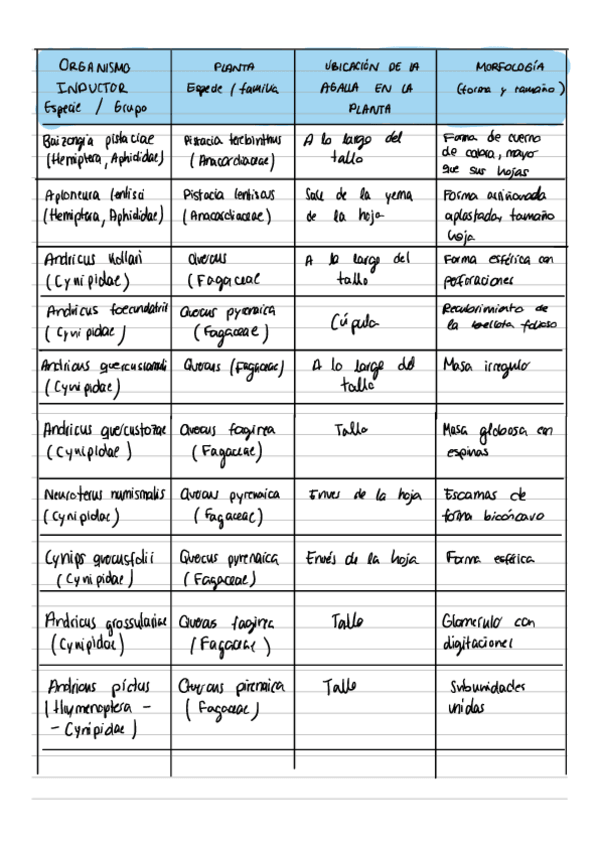 ORGANISMO
INDUCTOR
Especie / Grupo
PLANTA
Especie / familia
UBICACIÓN DE LA
AGALLA EN LA
PLANTA
MORFOLOGÍA
(forma y tamaño)
Baizongia pistaciae
(Hemiptera, Aphididae)
Pistacia terebinthus
(Anacardiaceae)
A lo largo del
tallo
Forma de cuerno
de cabra, mayor
que sus hojas
Aploneura lentisci
(Hemiptera, Aphididae)
Pistacia lentiscus
(Anacardiaceae)
Sale de la yema
de la hoja
Forma arriñonada
aplastada, tamaño
hoja
Andricus kollari
(Cynipidae)
Quercus
(Fagaceae
A lo largo del
tallo
Forma esférica con
perforaciones
Andricus foecundatrix
(Cynipidae)
Quercus pyrenaica
(Fagaceae)
Cúpula
Recubrimiento de
la bellota folioso
Andricus
(Cynipidae)
Quercus (Fagaceae)
A lo largo del
tallo
Masa irregular
Andricus quercustozae
(Cynipidae)
Quercus faginea
(Fagaceae)
Tallo
Masa globosa con
espinas
Neuroterus numismalis
(Cynipidae)
Quercus pyrenaica
(Fagaceae)
Enves de la hoja
Escamas de
forma bicóncavo
Cynips quercusfolii
(Cynipidae)
Quercus pyrenaica
(Fagaceae)
Envés de la hoja
Forma esférica
Andricus grossulariae
(Cynipidae)
Quercus faginea
(Fagaceae)
Tallo
Glomerulo con
digitaciones
Andricus pictus
(Hymenoptera -
- Cynipidae)
Quercus pirenaica
(Fagaceae)
Tallo
Subunidades
unidas